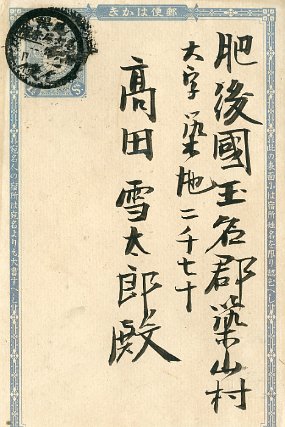 郵便はかき
肥後國玉名郡築山村
大字築地二千七十
髙田雪太郎殿